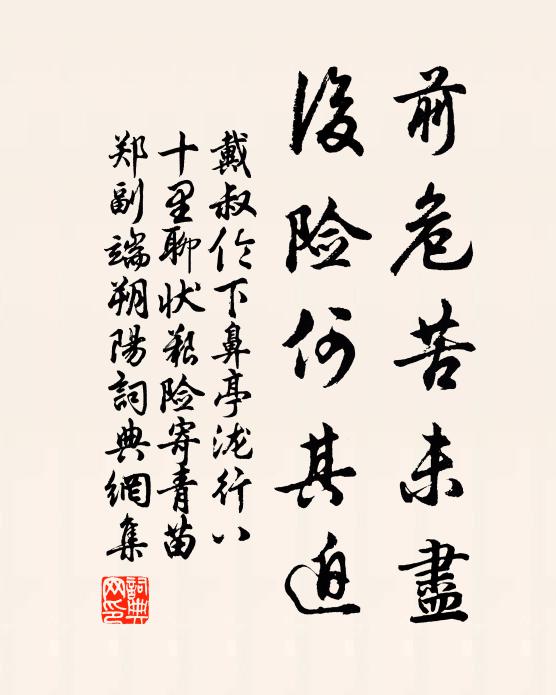 前危苦未盡
後险何其迫
戴叔伦下鼻亭泷行八
十里聊状艰险寄青苗
郑副端朔陽詞典網集
詞典网印